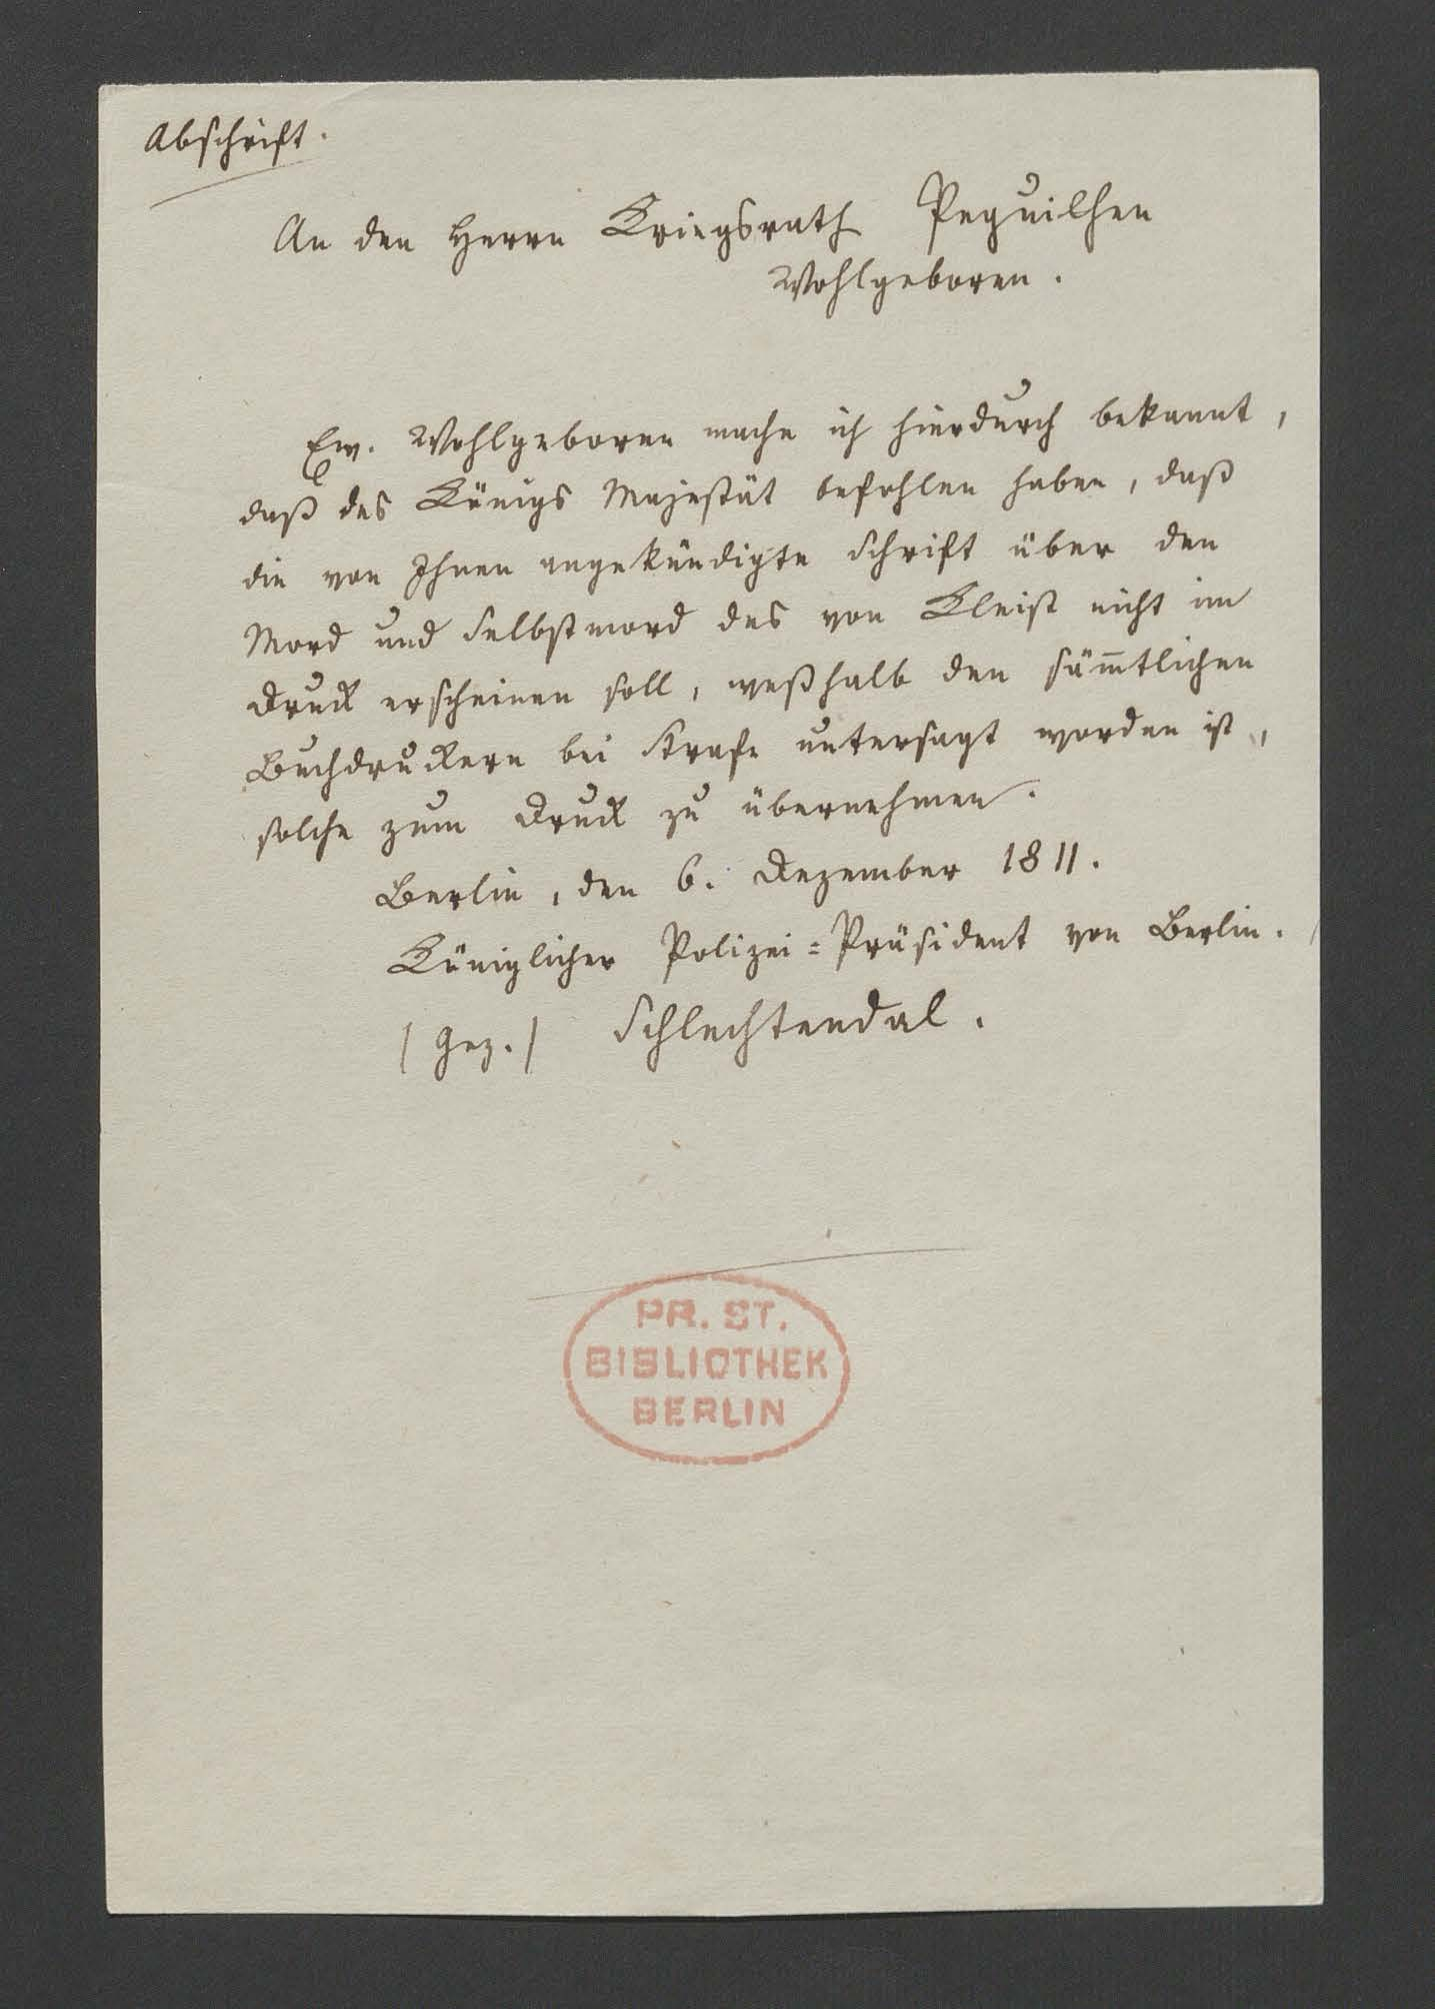 Abschrift.
An den Herrn Kriegsrath Peguilhen
Wohlgeboren.
Ew. Wohlgeboren mache ich hierdurch bekannt,
daß des Königs Majestät befohlen haben, daß
die von Ihnen angekündigte Schrift über den
Mord und Selbstmord des von Kleist nicht im
Druck erscheinen soll, weßhalb den sämtlichen
Buchdruckern bei Strafe untersagt worden ist,
solche zum Druck zu übernehmen.
Berlin, den 6. Dezember 1811.
Königlicher Polizei=Präsident von Berlin.
/ gez. / Schlechtendal.
PR. ST.
BIBLIOTHEK
BERLIN